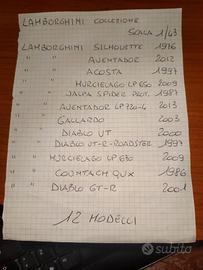 LAMBORGHINI COLLEZIONE
SCALA 1/43
LAMBORGHINI SILHOUETTE 1976
" " AVENTADOR 2012
" " ACOSTA 1997
" " MURCIELAGO LP 650 2009
" " JALPA SPIDER PROT. 1987
" " AVENTADOR LP 720-4 2013
" " GALLARDO 2003
" " DIABLO VT 2000
" " DIABLO VT-R-ROADSTER 1997
" " MURCIELAGO LP 650 2009
" " COUNTACH QVX 1986
" " DIABLO GT-R 2001
12 MODELLI
subito